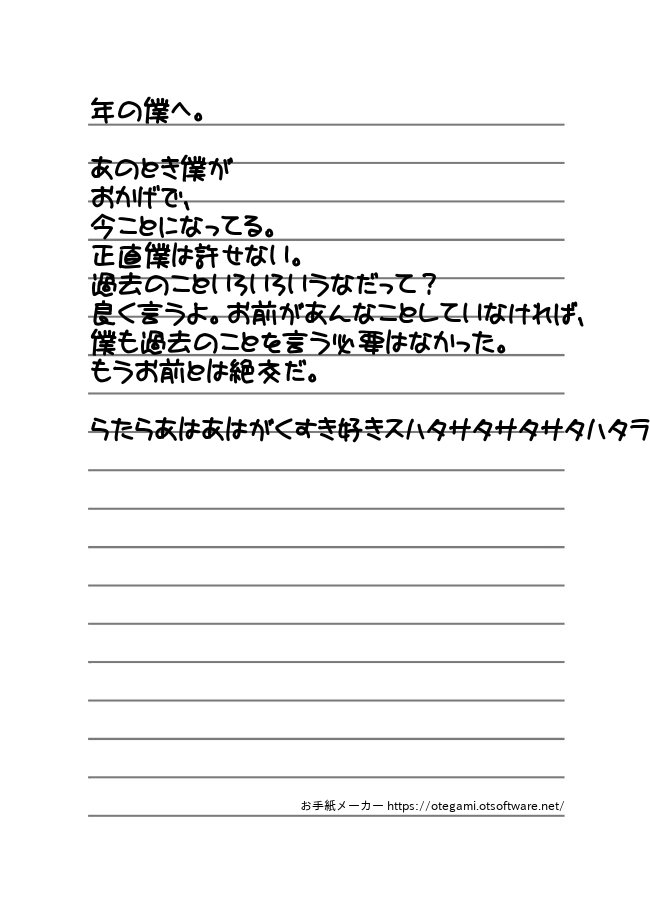 年の僕へ。
あのとき僕が
おかげで、
今ことになってる。
正直僕は許せない。
過去のこといろいろいうなだって？
良く言うよ。お前があんなことしていなければ、
僕も過去のことを言う必要はなかった。
もうお前とは絶交だ。
らたらあはあはがくすき好きスハタサタサタサタハタラ
お手紙メーカー https://otegami.otsoftware.net/